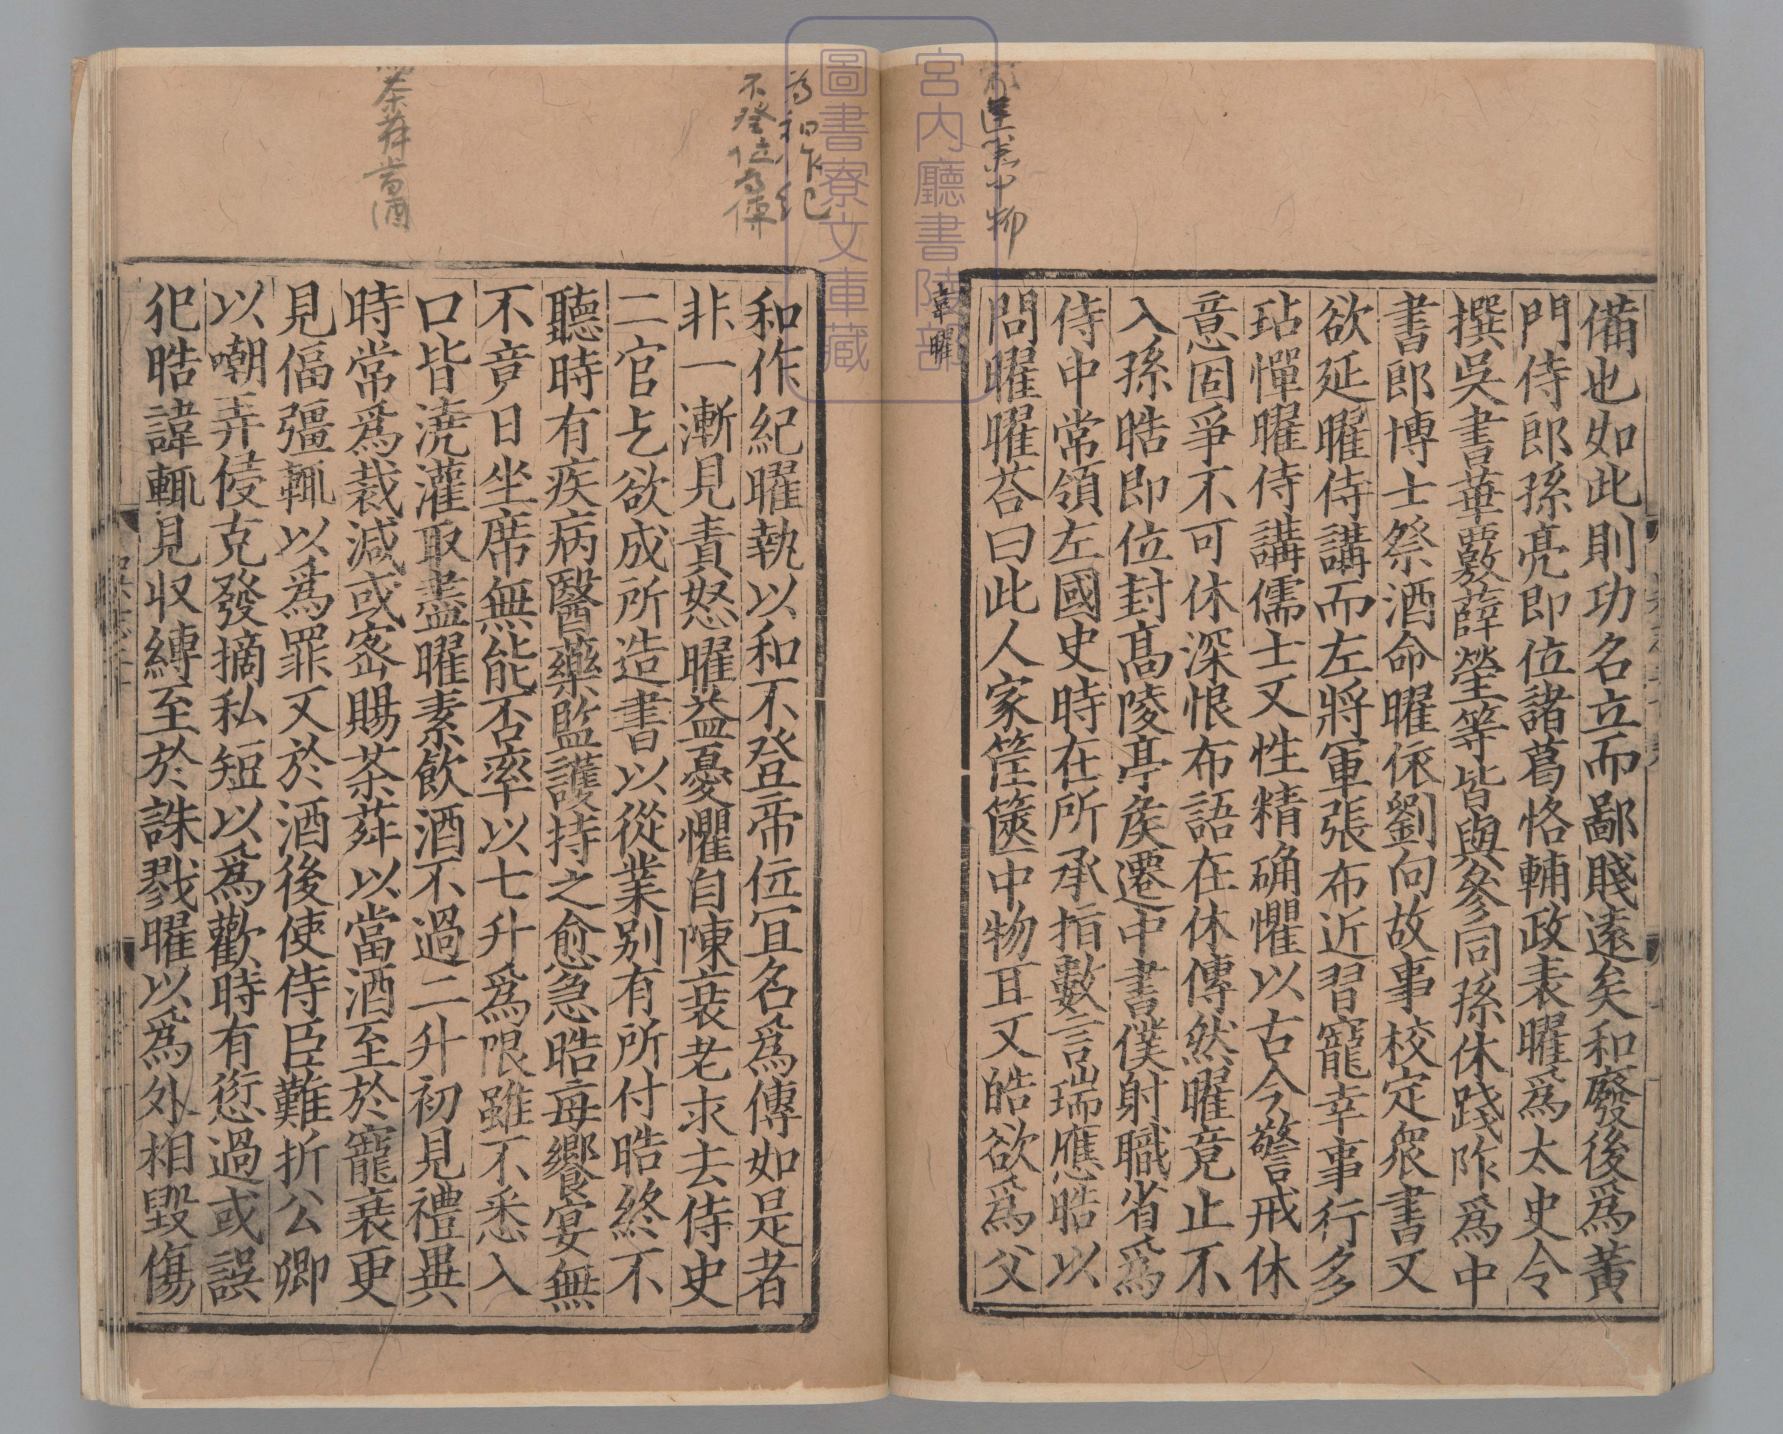 備也如此則功名立而鄙賤遠矣和廢後爲黃
門侍郎孫亮即位諸葛恪輔政表曜爲太史令
撰吳書華覈薛瑩等皆與參同孫休踐阼爲中
書郎博士祭酒命曜依劉向故事校定衆書又
欲延曜侍講而左將軍張布近習寵幸事行多
玷憚曜侍講儒士又性精确懼以古今警戒休
意固爭不可休深恨布語在休傳然曜竟止不
入孫晧即位封髙陵亭矦遷中書僕射職省爲
侍中常領左國史時在所承指數言瑞應晧以
問曜曜荅曰此人家筐篋中物耳又皓欲爲父
韋曜
和作紀曜執以和不登帝位冝名爲傳如是者
非一漸見責怒曜益憂懼自陳衰老求去侍史
二官乞欲成所造書以從業别有所付晧終不
聽時有疾病醫藥監護持之愈急晧每饗宴無
不竟日坐席無能否率以七升爲限雖不悉入
口皆澆灌取盡曜素飲酒不過二升初見禮異
時常爲裁減或密賜茶荈以當酒至於寵衰更
見偪彊輒以爲罪又於酒後使侍臣難折公卿
以嘲弄侵克發摘私短以爲歡時有愆過或誤
犯晧諱輒見収縛至於誅戮曜以爲外相毀傷
筐篋中物
为和作紀
不登位为傳
茶荈當酒
宮內廳書陵部
圖書寮文庫藏